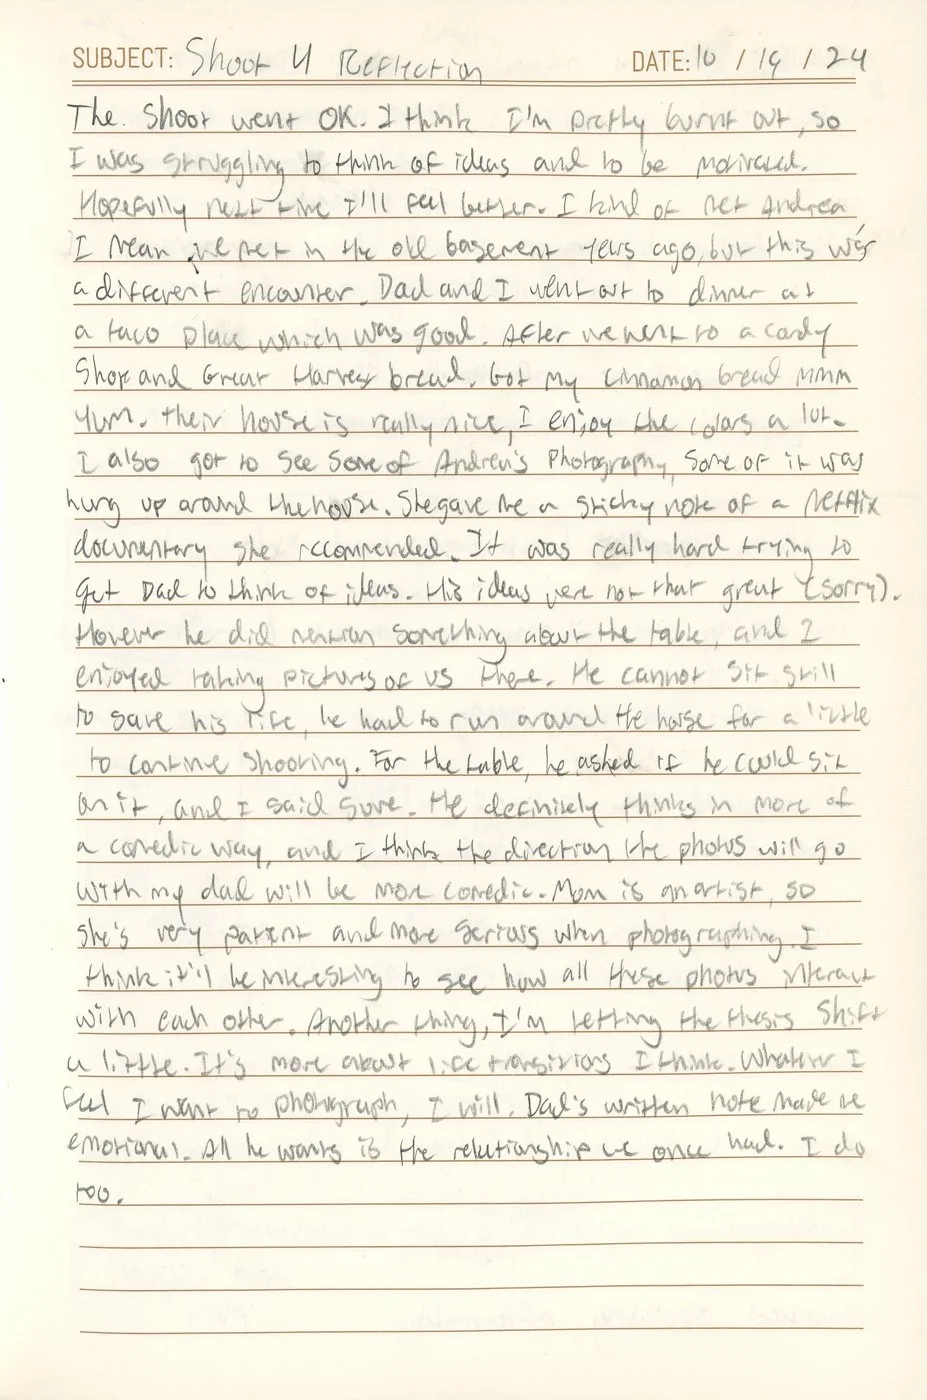 SUBJECT: Shoot 4 Reflection DATE: 10 / 19 / 24
The Shoot went OK. I think I'm pretty burnt out, so
I was struggling to think of ideas and to be motivated.
Hopefully next time I'll feel better. I kind of met Andrea
I mean, we met in the old basement years ago, but this was
a different encounter. Dad and I went out to dinner at
a taco place which was good. After we went to a candy
Shop and Great Harvest bread. Got my cinnamon bread mmm
yum. their house is really nice, I enjoy the colors a lot.
I also got to see some of Andrea's photography, some of it was
hung up around the house. She gave me a sticky note of a Netflix
documentary she recommended. It was really hard trying to
get Dad to think of ideas. His ideas were not that great (sorry).
However he did mention something about the table, and I
enjoyed taking pictures of us there. He cannot sit still
to save his life, he had to run around the house for a little
to continue shooting. For the table, he asked if he could sit
on it, and I said sure. He definitely thinks in more of
a comedic way, and I think the direction the photos will go
with my dad will be more comedic. Mom is an artist, so
she's very patient and more serious when photographing. I
think it'll be interesting to see how all these photos interact
with each other. Another thing, I'm letting the thesis shift
a little. It's more about life transitions I think. Whatever I
feel I want to photograph, I will. Dad's written note made me
emotional. All he wants is the relationship we once had. I do
too.